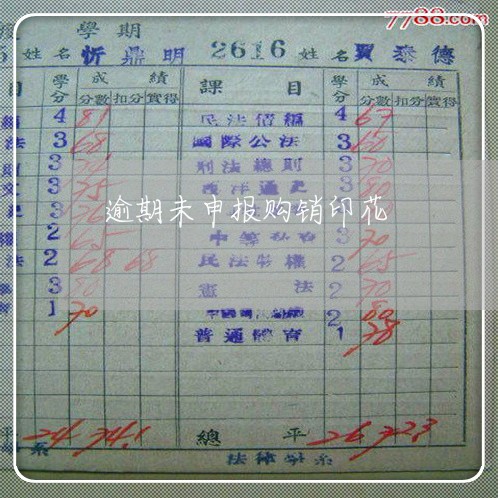 7788.com
學期
姓名 忻鼎明 2616 姓名 賈泰德
目 學分 成績 課目 學分 成績
分數 扣分 實得 分數 扣分 實得
4 81 民法債編 4 67
法 3 68 國際公法 3 60
3 刑法總則 3 70
3 75 西洋通史 3 80
逾期未申报购销印花
2 65 3 70
法 2 68 68 民法物權 2 65
3 80 憲法 2 70
1 70 2 80
普通體育 1 78
平 24 74.1 總平 26 72.3
系 法律學系